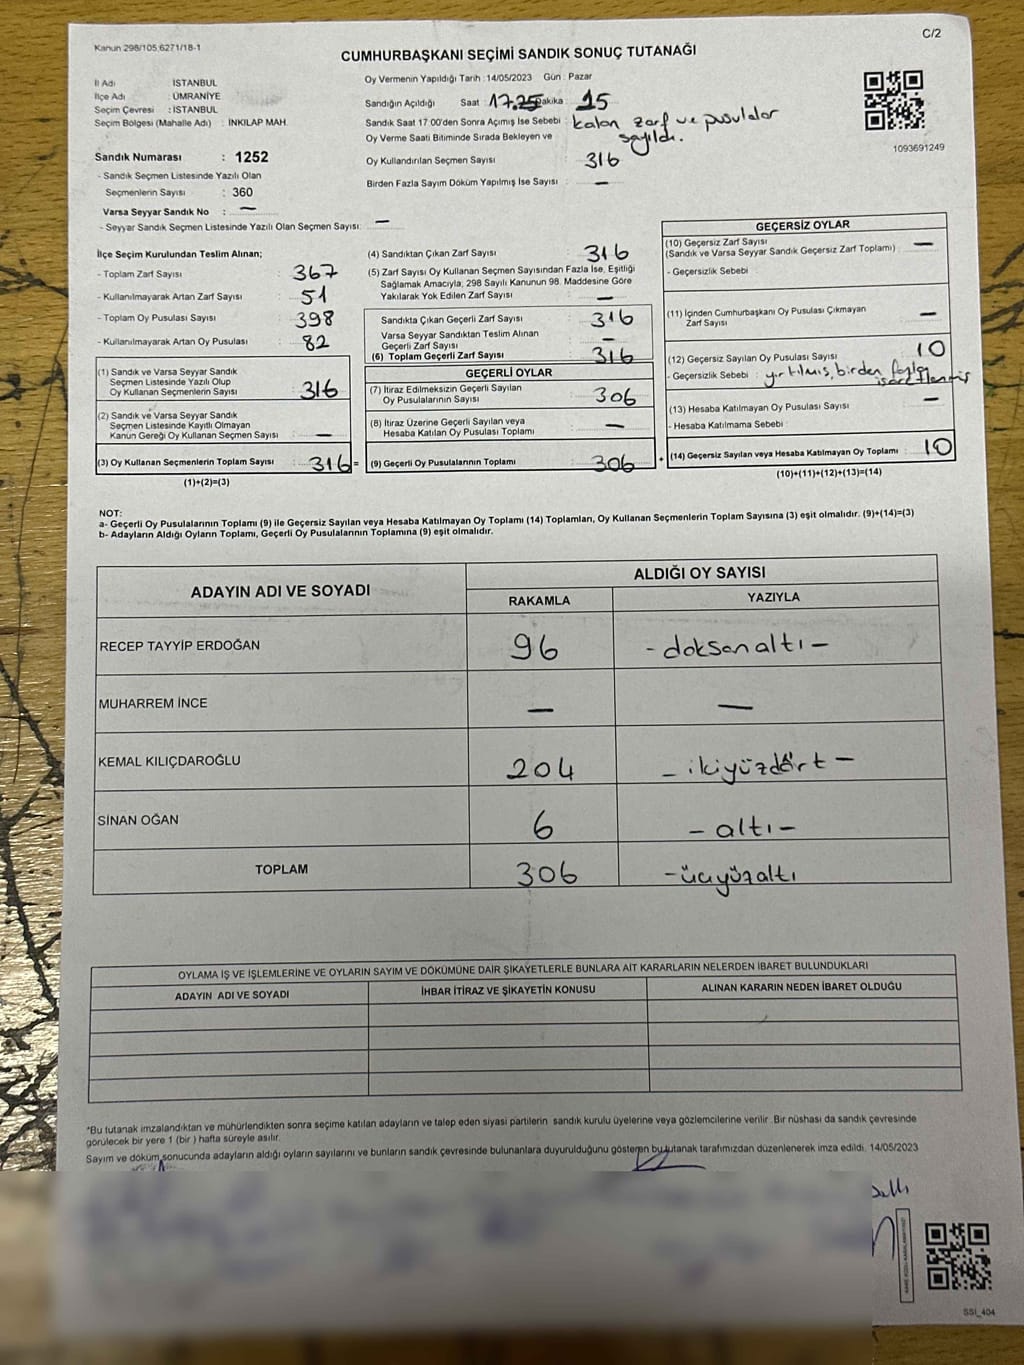 Kanun 298/105,6271/18-1
C/2
CUMHURBAŞKANI SEÇİMİ SANDIK SONUÇ TUTANAĞI
İl Adı İSTANBUL
İlçe Adı : ÜMRANİYE
Seçim Çevresi : İSTANBUL
Seçim Bölgesi (Mahalle Adı) : İNKILAP MAH.
Oy Vermenin Yapıldığı Tarih :14/05/2023 Gün : Pazar
Sandığın Açıldığı Saat : 17.25 Dakika : 15
Sandık Saat 17:00'den Sonra Açımış İse Sebebi : kalan zarf ve pusulalar
Oy Verme Saati Bitiminde Sırada Bekleyen ve sayıldı.
Oy Kullandırılan Seçmen Sayısı : 316
Birden Fazla Sayım Döküm Yapılmış İse Sayısı : —
1093691249
Sandık Numarası : 1252
- Sandık Seçmen Listesinde Yazılı Olan
Seçmenlerin Sayısı : 360
Varsa Seyyar Sandık No : —
- Seyyar Sandık Seçmen Listesinde Yazılı Olan Seçmen Sayısı: —
İlçe Seçim Kurulundan Teslim Alınan;
- Toplam Zarf Sayısı : 367
- Kullanılmayarak Artan Zarf Sayısı : 51
- Toplam Oy Pusulası Sayısı : 398
- Kullanılmayarak Artan Oy Pusulası : 82
(1) Sandık ve Varsa Seyyar Sandık
Seçmen Listesinde Yazılı Olup
Oy Kullanan Seçmenlerin Sayısı : 316
(2) Sandık ve Varsa Seyyar Sandık
Seçmen Listesinde Kayıtlı Olmayan
Kanun Gereği Oy Kullanan Seçmen Sayısı : —
(3) Oy Kullanan Seçmenlerin Toplam Sayısı : 316 =
(1)+(2)=(3)
(4) Sandıktan Çıkan Zarf Sayısı : 316
(5) Zarf Sayısı Oy Kullanan Seçmen Sayısından Fazla İse, Eşitliği
Sağlamak Amacıyla, 298 Sayılı Kanunun 98. Maddesine Göre
Yakılarak Yok Edilen Zarf Sayısı : —
Sandıkta Çıkan Geçerli Zarf Sayısı : 316
Varsa Seyyar Sandıktan Teslim Alınan
Geçerli Zarf Sayısı : —
(6) Toplam Geçerli Zarf Sayısı : 316
GEÇERLİ OYLAR
(7) İtiraz Edilmeksizin Geçerli Sayılan
Oy Pusulalarının Sayısı : 306
(8) İtiraz Üzerine Geçerli Sayılan veya
Hesaba Katılan Oy Pusulası Toplamı : —
(9) Geçerli Oy Pusulalarının Toplamı : 306 +
GEÇERSİZ OYLAR
(10) Geçersiz Zarf Sayısı
(Sandık ve Varsa Seyyar Sandık Geçersiz Zarf Toplamı) : —
- Geçersizlik Sebebi :
(11) İçinden Cumhurbaşkanı Oy Pusulası Çıkmayan
Zarf Sayısı : —
(12) Geçersiz Sayılan Oy Pusulası Sayısı : 10
- Geçersizlik Sebebi : yırtılmış, birden fazla
işaretlenmiş
(13) Hesaba Katılmayan Oy Pusulası Sayısı : —
- Hesaba Katılmama Sebebi :
(14) Geçersiz Sayılan veya Hesaba Katılmayan Oy Toplamı : 10
(10)+(11)+(12)+(13)=(14)
NOT:
a- Geçerli Oy Pusulalarının Toplamı (9) ile Geçersiz Sayılan veya Hesaba Katılmayan Oy Toplamı (14) Toplamları, Oy Kullanan Seçmenlerin Toplam Sayısına (3) eşit olmalıdır. (9)+(14)=(3)
b- Adayların Aldığı Oyların Toplamı, Geçerli Oy Pusulalarının Toplamına (9) eşit olmalıdır.
ADAYIN ADI VE SOYADI ALDIĞI OY SAYISI
RAKAMLA YAZIYLA
RECEP TAYYİP ERDOĞAN 96 - doksanaltı -
MUHARREM İNCE — —
KEMAL KILIÇDAROĞLU 204 - ikiyüzdört -
SİNAN OĞAN 6 - altı -
TOPLAM 306 - üçyüzaltı
OYLAMA İŞ VE İŞLEMLERİNE VE OYLARIN SAYIM VE DÖKÜMÜNE DAİR ŞİKAYETLERLE BUNLARA AİT KARARLARIN NELERDEN İBARET BULUNDUKLARI
ADAYIN ADI VE SOYADI İHBAR İTİRAZ VE ŞİKAYETİN KONUSU ALINAN KARARIN NEDEN İBARET OLDUĞU
*Bu tutanak imzalandıktan ve mühürlendikten sonra seçime katılan adayların ve talep eden siyasi partilerin sandık kurulu üyelerine veya gözlemcilerine verilir. Bir nüshası da sandık çevresinde
görülecek bir yere 1 (bir ) hafta süreyle asılır.
Sayım ve döküm sonucunda adayların aldığı oyların sayılarını ve bunların sandık çevresinde bulunanlara duyurulduğunu gösteren bu tutanak tarafımızdan düzenlenerek imza edildi. 14/05/2023
SSI_404